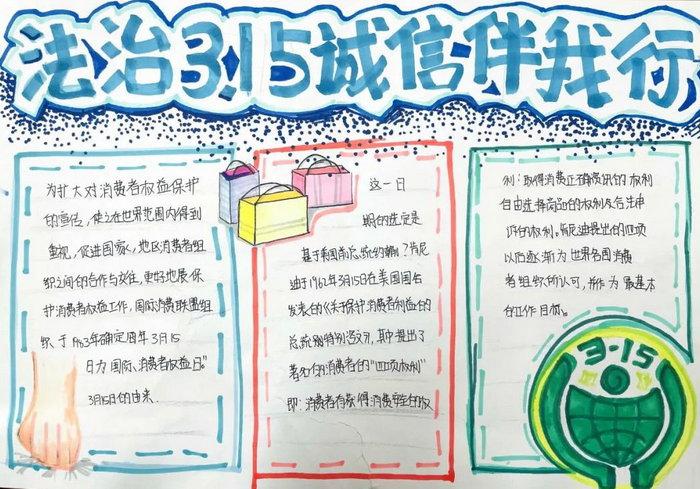 法治3.15诚信伴我行
为扩大对消费者权益保护
的宣传，使之在世界范围内得到
重视，促进国家，地区消费者组
织之间的合作与交往，更好地展保
护消费者权益工作，国际消费联盟组
织于1983年确定每年3月15
日为"国际消费者权益日"。
3月15日的由来.
这一日
期的选定是
基于美国前总统约翰？肯尼
迪于1962年3月15日在美国国会
发表的《关于保护消费者利益的
总统特别咨文》，其中提出了
著名的消费者的"四项权利"
即：消费者有获得消费安全的权
利：取得消费正确资讯的权利
自由选择商品的权利及合法申
诉的权利。肯尼迪提出的四项
以后逐渐为世界各国消费
者组织所认可，并作为最基本
的工作目标。
3-15